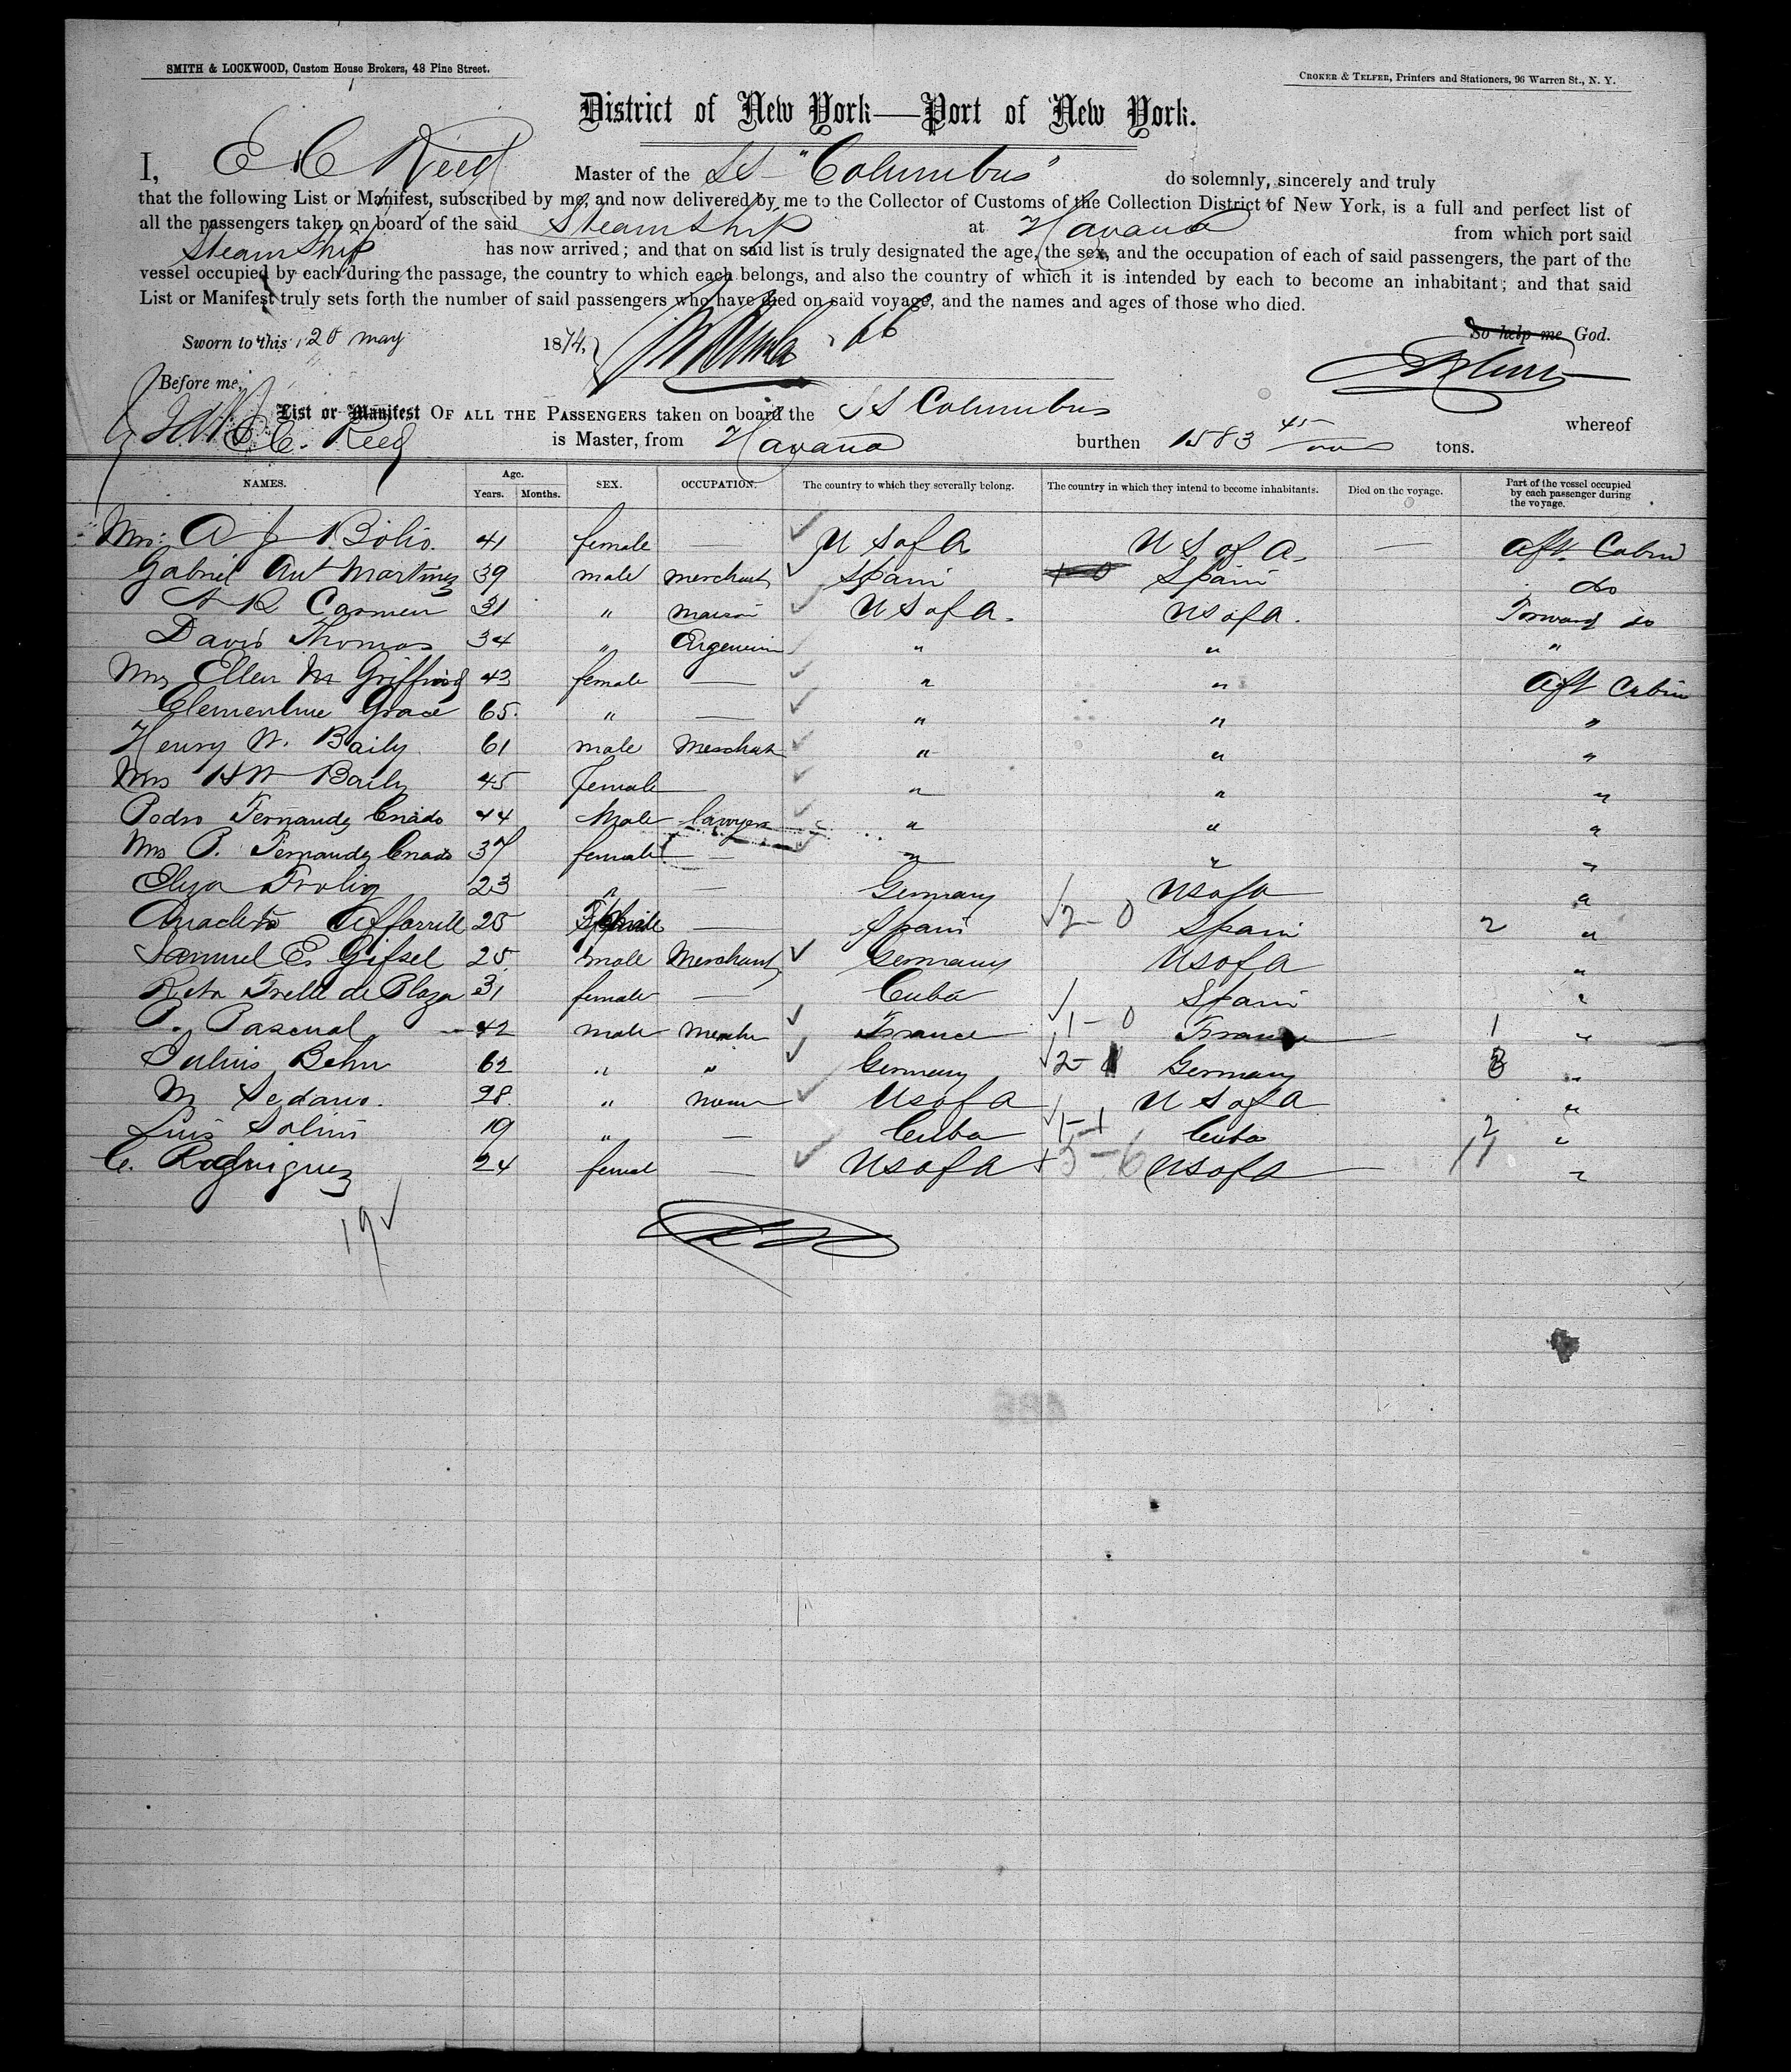 SMITH & LOCKWOOD, Custom House Brokers, 43 Pine Street.
CROKER & TELFER, Printers and Stationers, 96 Warren St., N. Y.
District of New York—Port of New York.
I, E C Reed Master of the SS "Columbus" do solemnly, sincerely and truly
that the following List or Manifest, subscribed by me, and now delivered by me to the Collector of Customs of the Collection District of New York, is a full and perfect list of
all the passengers taken on board of the said Steamship at Havana from which port said
Steamship has now arrived; and that on said list is truly designated the age, the sex, and the occupation of each of said passengers, the part of the
vessel occupied by each during the passage, the country to which each belongs, and also the country of which it is intended by each to become an inhabitant; and that said
List or Manifest truly sets forth the number of said passengers who have died on said voyage, and the names and ages of those who died.
So help me God.
Sworn to this 20 may 1874,
Before me,
List or Manifest OF ALL THE PASSENGERS taken on board the SS Columbus whereof
E. C. Reed is Master, from Havana burthen 1583 45/100 tons.
NAMES. Age. Years. Months. SEX. OCCUPATION. The country to which they severally belong. The country in which they intend to become inhabitants. Died on the voyage. Part of the vessel occupied by each passenger during the voyage.
Mrs. A J Bolio. 41 female — U S of A U S of A. — Aft Cabin
Gabriel Ant Martinez 39 male merchant Spain Spain do
A R Carmen 31 " mason U S of A. U S of A. Forward do
David Thomas 34 " " " "
Mrs Ellen M Griffing 43 female — " " Aft Cabin
Clementine Grace 65. " — " " "
Henry W. Baily 61 male Merchant " " "
Mrs H W Baily 45 female " " "
Pedro Fernandez Criado 44 Male lawyer " " "
Mrs P. Fernandez Criado 37 female — " " "
Eliza 23 " — Germany U S of A "
25 — Spain 2-0 Spain 2 "
Samuel E. 25 male Merchant Germany U S of A "
Rita Frelle de Plaza 31 female — Cuba Spain "
P. Pascual 42 male France 1-0 France 1 "
Julius Behn 62 " " Germany 2- Germany "
M Sedano. 28 " U S of A U S of A "
Luis Solius 19 " — Cuba 1-1 Cuba 2 "
C. Rodriguez 24 female — U S of A 5-6 U S of A 11 "
19